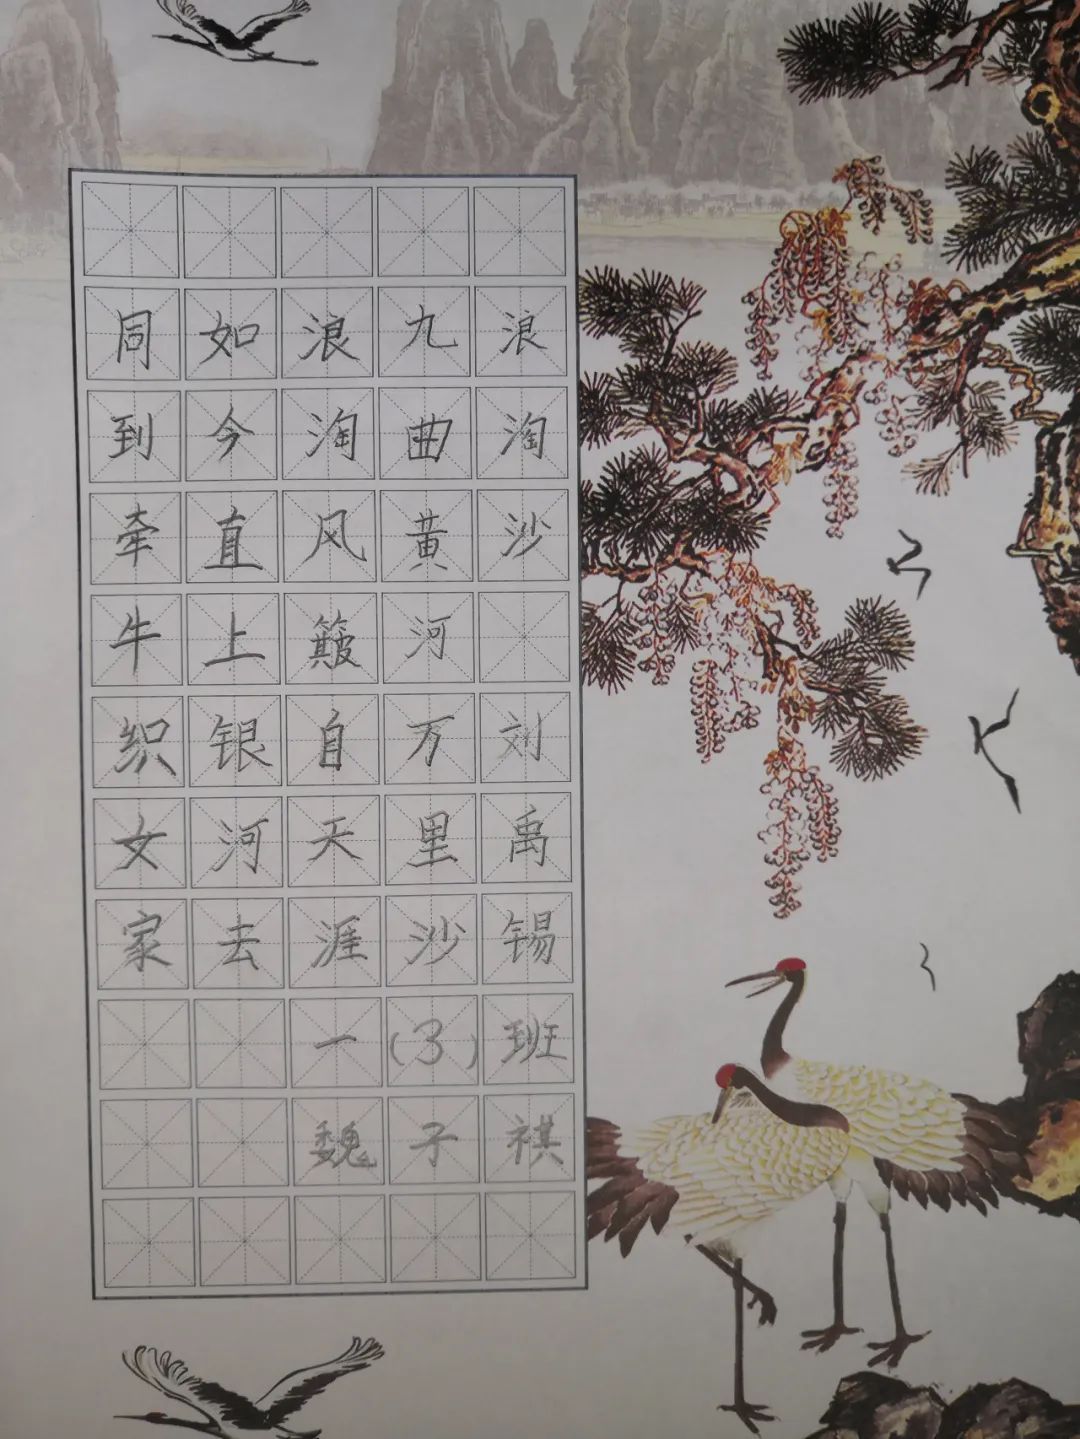 浪淘沙 刘禹锡
九曲黄河万里沙
浪淘风簸自天涯
如今直上银河去
同到牵牛织女家
一(3)班
魏子祺